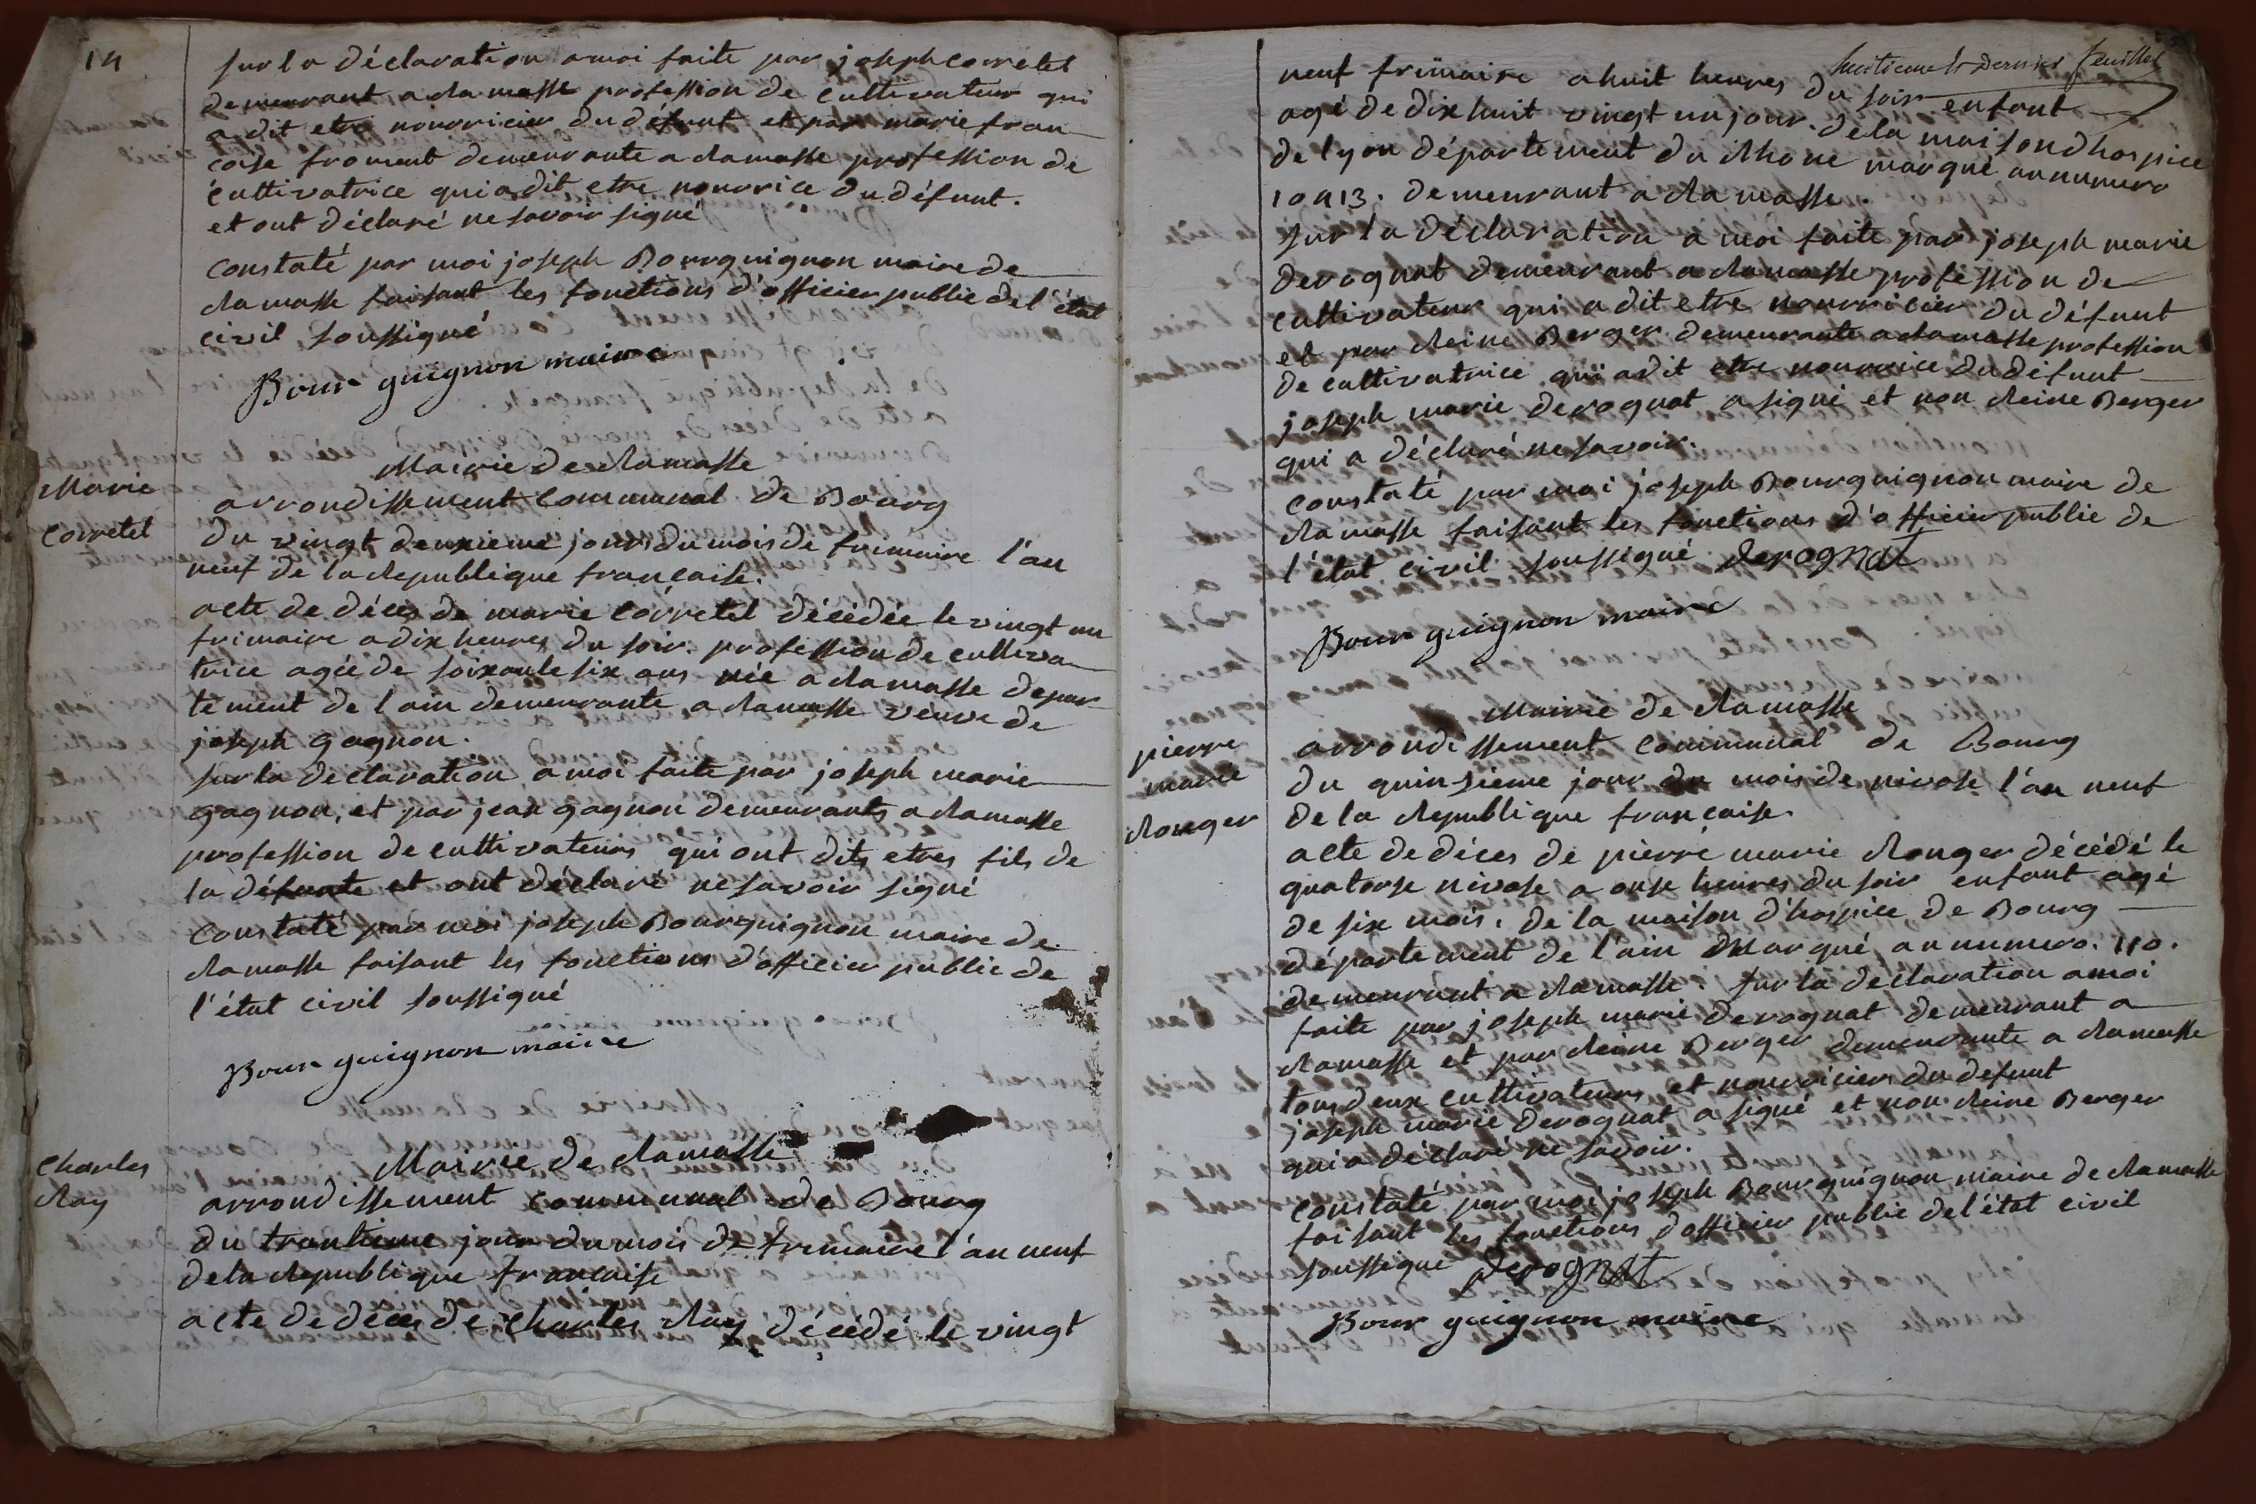 14
sur la déclaration a moi faite par joseph corretel
demeurant a Ramasse profession de cultivateur qui
a dit etre nourricier du défunt et par marie fran
coise froment demeurante a Ramasse profession de
cultivatrice qui a dit etre nourrice du défunt.
et ont déclaré ne savoir signé
constaté par moi joseph Bourguignon maire de
Ramasse faisant les fonctions d'officier public de l'état
civil soussigné
Bourguignon maire
Marie
Corretel
Mairie de Ramasse
arrondissement communal de Bourg
du vingt deuxieme jour du mois de frimaire l'an
neuf de la Republique francaise.
acte de décès de marie Corretel décédée le vingt un
frimaire a dix heures du soir. profession de cultiva
trice agée de soixante six ans née a Ramasse depar
tement de l'ain demeurante a Ramasse veuve de
joseph gagnon.
sur la declaration a moi faite par joseph marie
gagnon, et par jean gagnon demeurants a Ramasse
profession de cultivateurs qui ont dits etres fils de
la défunte et ont déclaré ne savoir signé
constaté par moi joseph Bourguignon maire de
Ramasse faisant les fonctions d'officier public de
l'état civil soussigné
Bourguignon maire
Charles
Ray
Mairie de Ramasse
arrondissement communal de Bourg
du trantieme jour du mois de frimaire l'an neuf
de la Republique francaise
acte de décès de Charles Ray décédé le vingt
huitieme et dernier feuillet
neuf frimaire a huit heures du soir enfant
agé de dix huit vingt un jour. de la maison d'hospice
de lyon département du Rhone marqué au numero
10413. demeurant a Ramasse.
sur la déclaration a moi faite par joseph marie
derognat demeurant a Ramasse profession de
cultivateur qui a dit etre nourricier du défunt
et par Reine Berger demeurante a Ramasse profession
de cultivatrice qui a dit etre nourrice du défunt
joseph marie derognat a signé et non Reine Berger
qui a déclaré ne savoir.
constaté par moi joseph Bourguignon maire de
Ramasse faisant les fonctions d'officier public de
l'état civil soussigné derognat
Bourguignon maire
pierre
marie
Rouger
Mairie de Ramasse
arrondissement communal de Bourg
du quinsieme jour du mois de nivose l'an neuf
de la Republique francaise.
acte de décès de pierre marie Rouger décédé le
quatorse nivose a onse heures du soir enfant agé
de six mois. de la maison d'hospice de Bourg
département de l'ain marqué au numero. 110.
demeurant a Ramasse. sur la déclaration a moi
faite par joseph marie derognat demeurant a
Ramasse et par Reine Berger demeurante a Ramasse
tous deux cultivateurs et nourriciers du defunt
joseph marie derognat a signé et non Reine Berger
qui a déclaré ne savoir.
constaté par moi joseph Bourguignon maire de Ramasse
faisant les fonctions d'officier public de l'état civil
soussigné derognat
Bourguignon maire